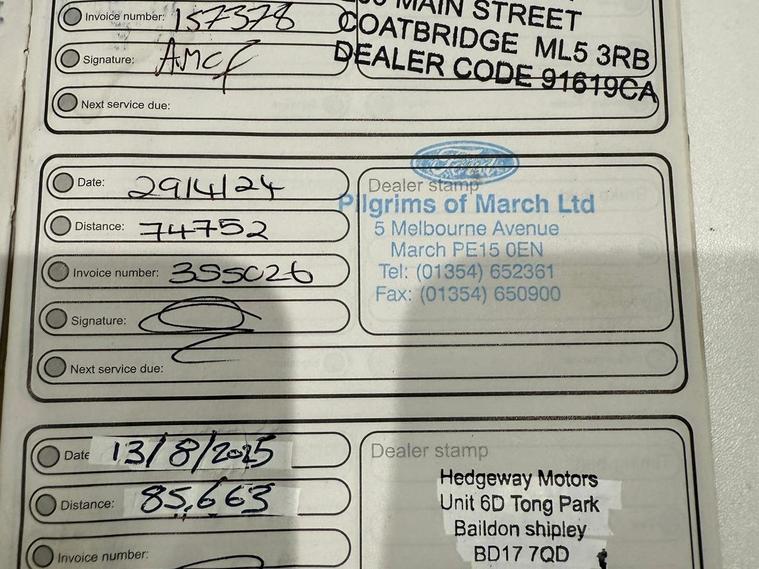 Invoice number: 157378
MAIN STREET
COATBRIDGE ML5 3RB
Signature: AMcf
DEALER CODE 91619CA
Next service due:
Date: 29/4/24
Dealer stamp
Ford
Pilgrims of March Ltd
Distance: 74752
5 Melbourne Avenue
March PE15 0EN
Invoice number: 355026
Tel: (01354) 652361
Fax: (01354) 650900
Signature:
Next service due:
Date 13/8/2025
Dealer stamp
Distance: 85,663
Hedgeway Motors
Unit 6D Tong Park
Baildon shipley
BD17 7QD
Invoice number: